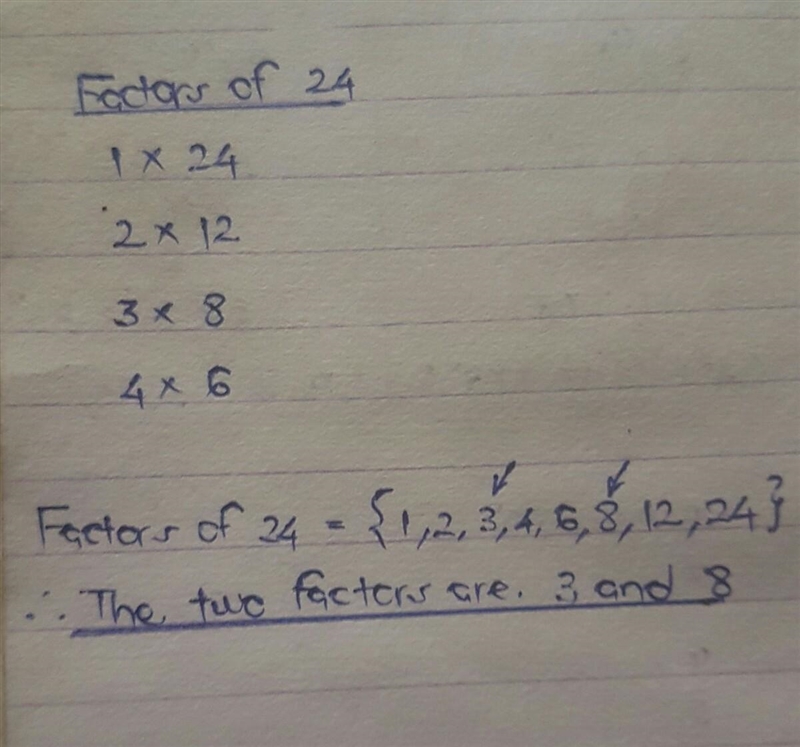 Factors of 24
1 × 24
2 × 12
3 × 8
4 × 6
Factors of 24 = {1, 2, 3, 4, 6, 8, 12, 24}
∴ The two factors are. 3 and 8